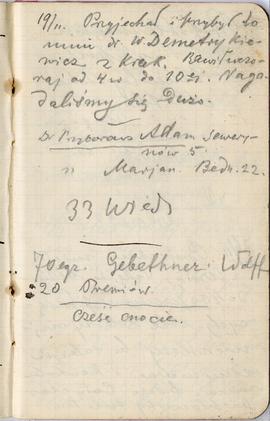 19/II. Przyjechał i przybył do
mnie dr. W. Demetrykie-
wicz z Krak. Bawił wczo-
raj od 4 w do 10 ej. Naga-
daliśmy się dużo.
Dr Przyborows Adam Sewery-
nów 5.
" Marjan. Bedn. 22.
33 Wied
70 egz. Gebethner i Wolff
20 Premiów
Cześć cnocie.